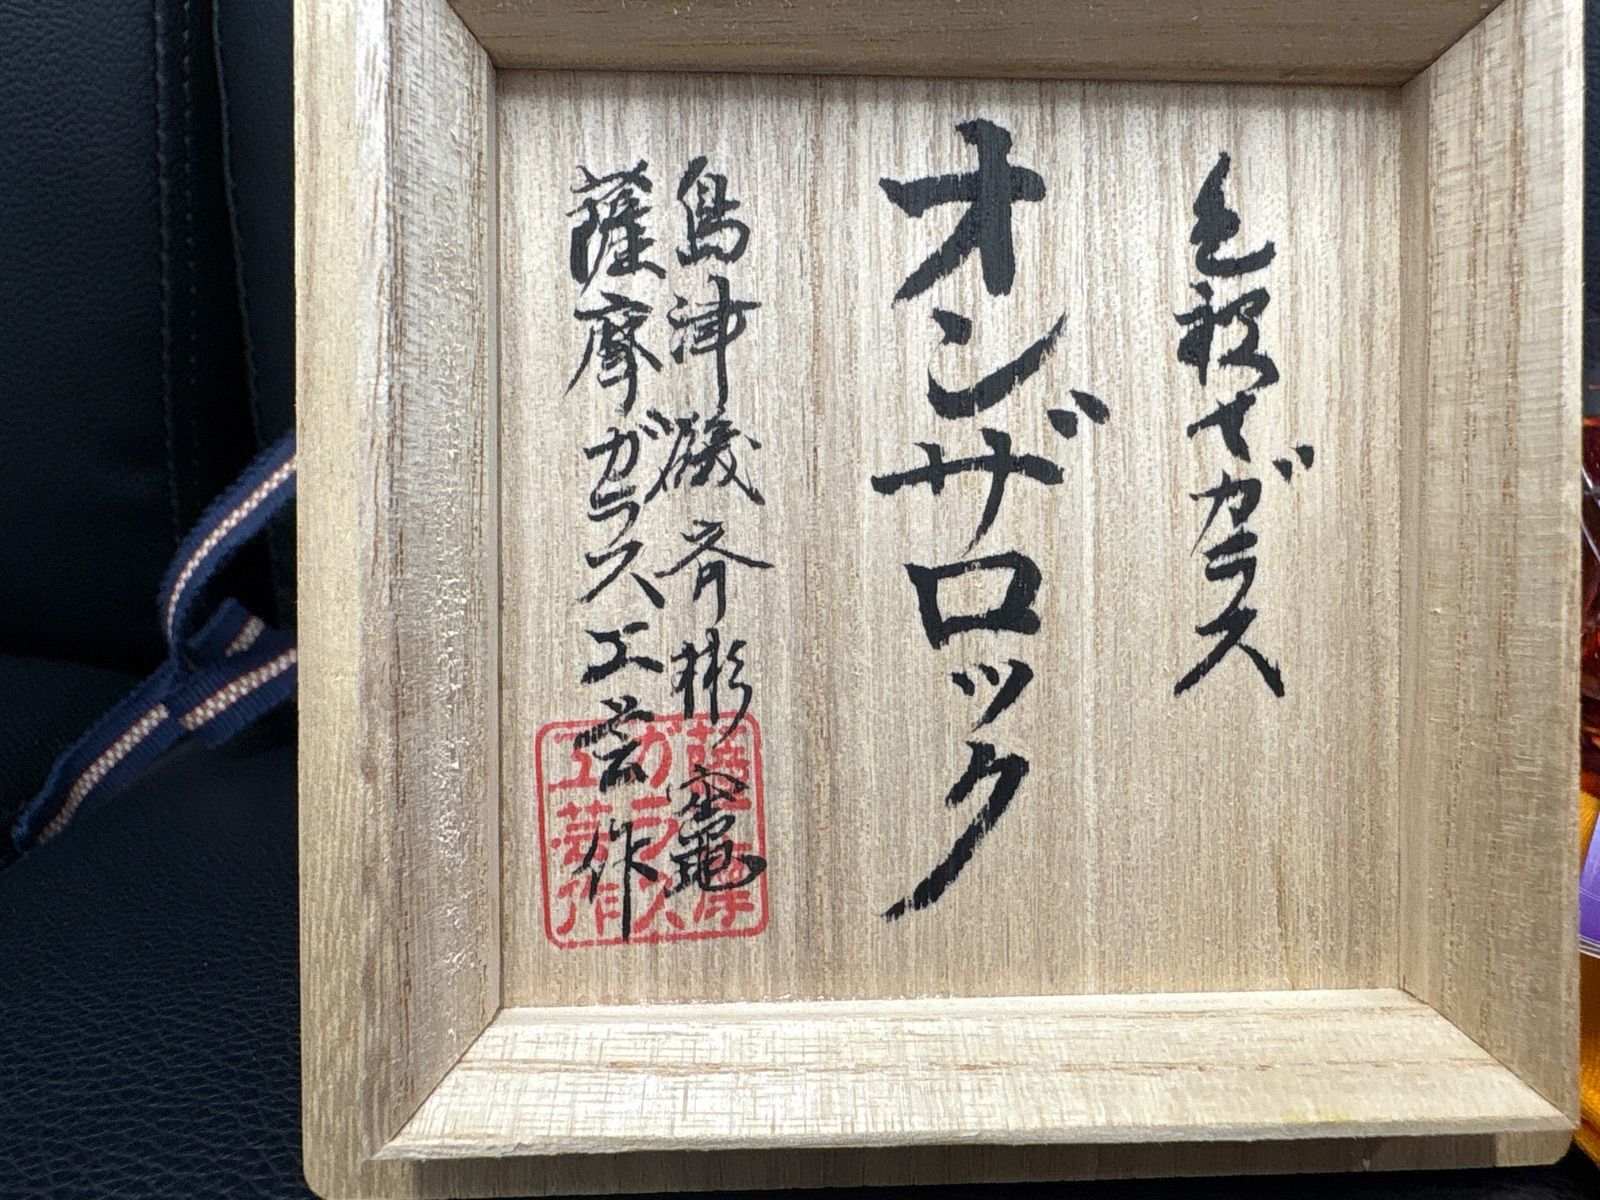 色被せガラス
オンザロック
島津磯斉彬窯
薩摩ガラス工芸作
薩摩
ガラス
工芸作